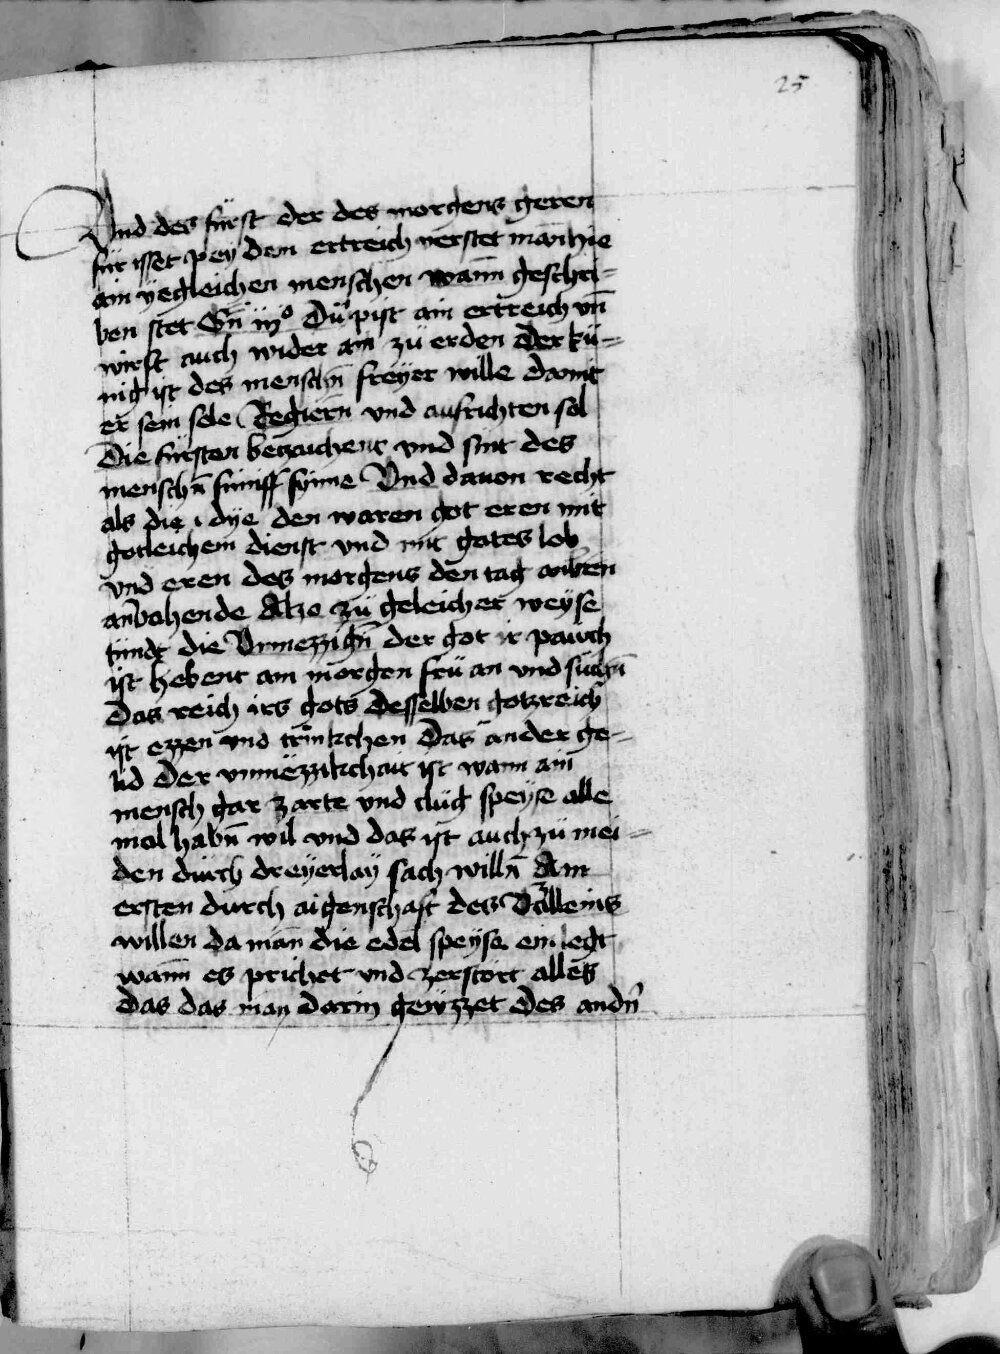 25
Vnd des fürst der des morgens geren
für isset pey dem ertreich verstet man hie
ain yegleichen menschen wann geschri-
ben stet Gn̄ iijº Dü pist ain ertreich vn̄
wirst auch wider ain zü erden Der kü-
nig ist des mensch̄n freyer wille damit
er sein sele Regiern̄ vnd aufrichten sol
Die fürsten bezaichent vnd sint des
mensch̄n fümff synne Vnd dauon recht
als die dye den waren got eren mit
gotleichem dienst vnd mit gotes lob
vnd eren des morgens den tag
anvahende Alzo zü geleicher weyse
tündt die Vnmezzign̄ der got ir pauch
ist hebent am morgen frü an vnd süchn̄
Das reich irs gots Desselben gotzreich
ist ezzen vnd trinkchen Das ander ge-
lid Der vnmezzikchait ist wann ain
mensch gar zarte vnd clüg speyse alle
mal habn̄ wil vnd das ist auch zü mei-
den dürch dreyerlay sach willn̄ Am
ersten dürch aigenschaft des
willen da man die edel speyse einlegt
wann es prichet vnd zerstört alles
das das man darin geüzzet Des andn̄